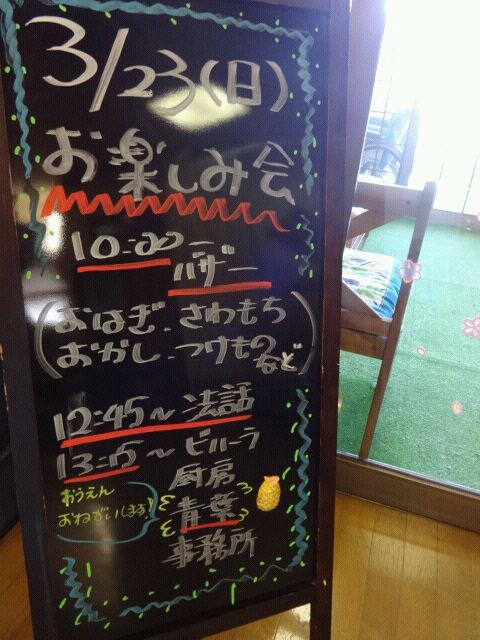 3/23(日)
お楽しみ会
10:00ー
バザー
(おはぎ.さわもち
おかし.つけものなど)
12:45~法話
13:15~ビハーラ
厨房
青葉
事務所
おうえん
おねがいします!